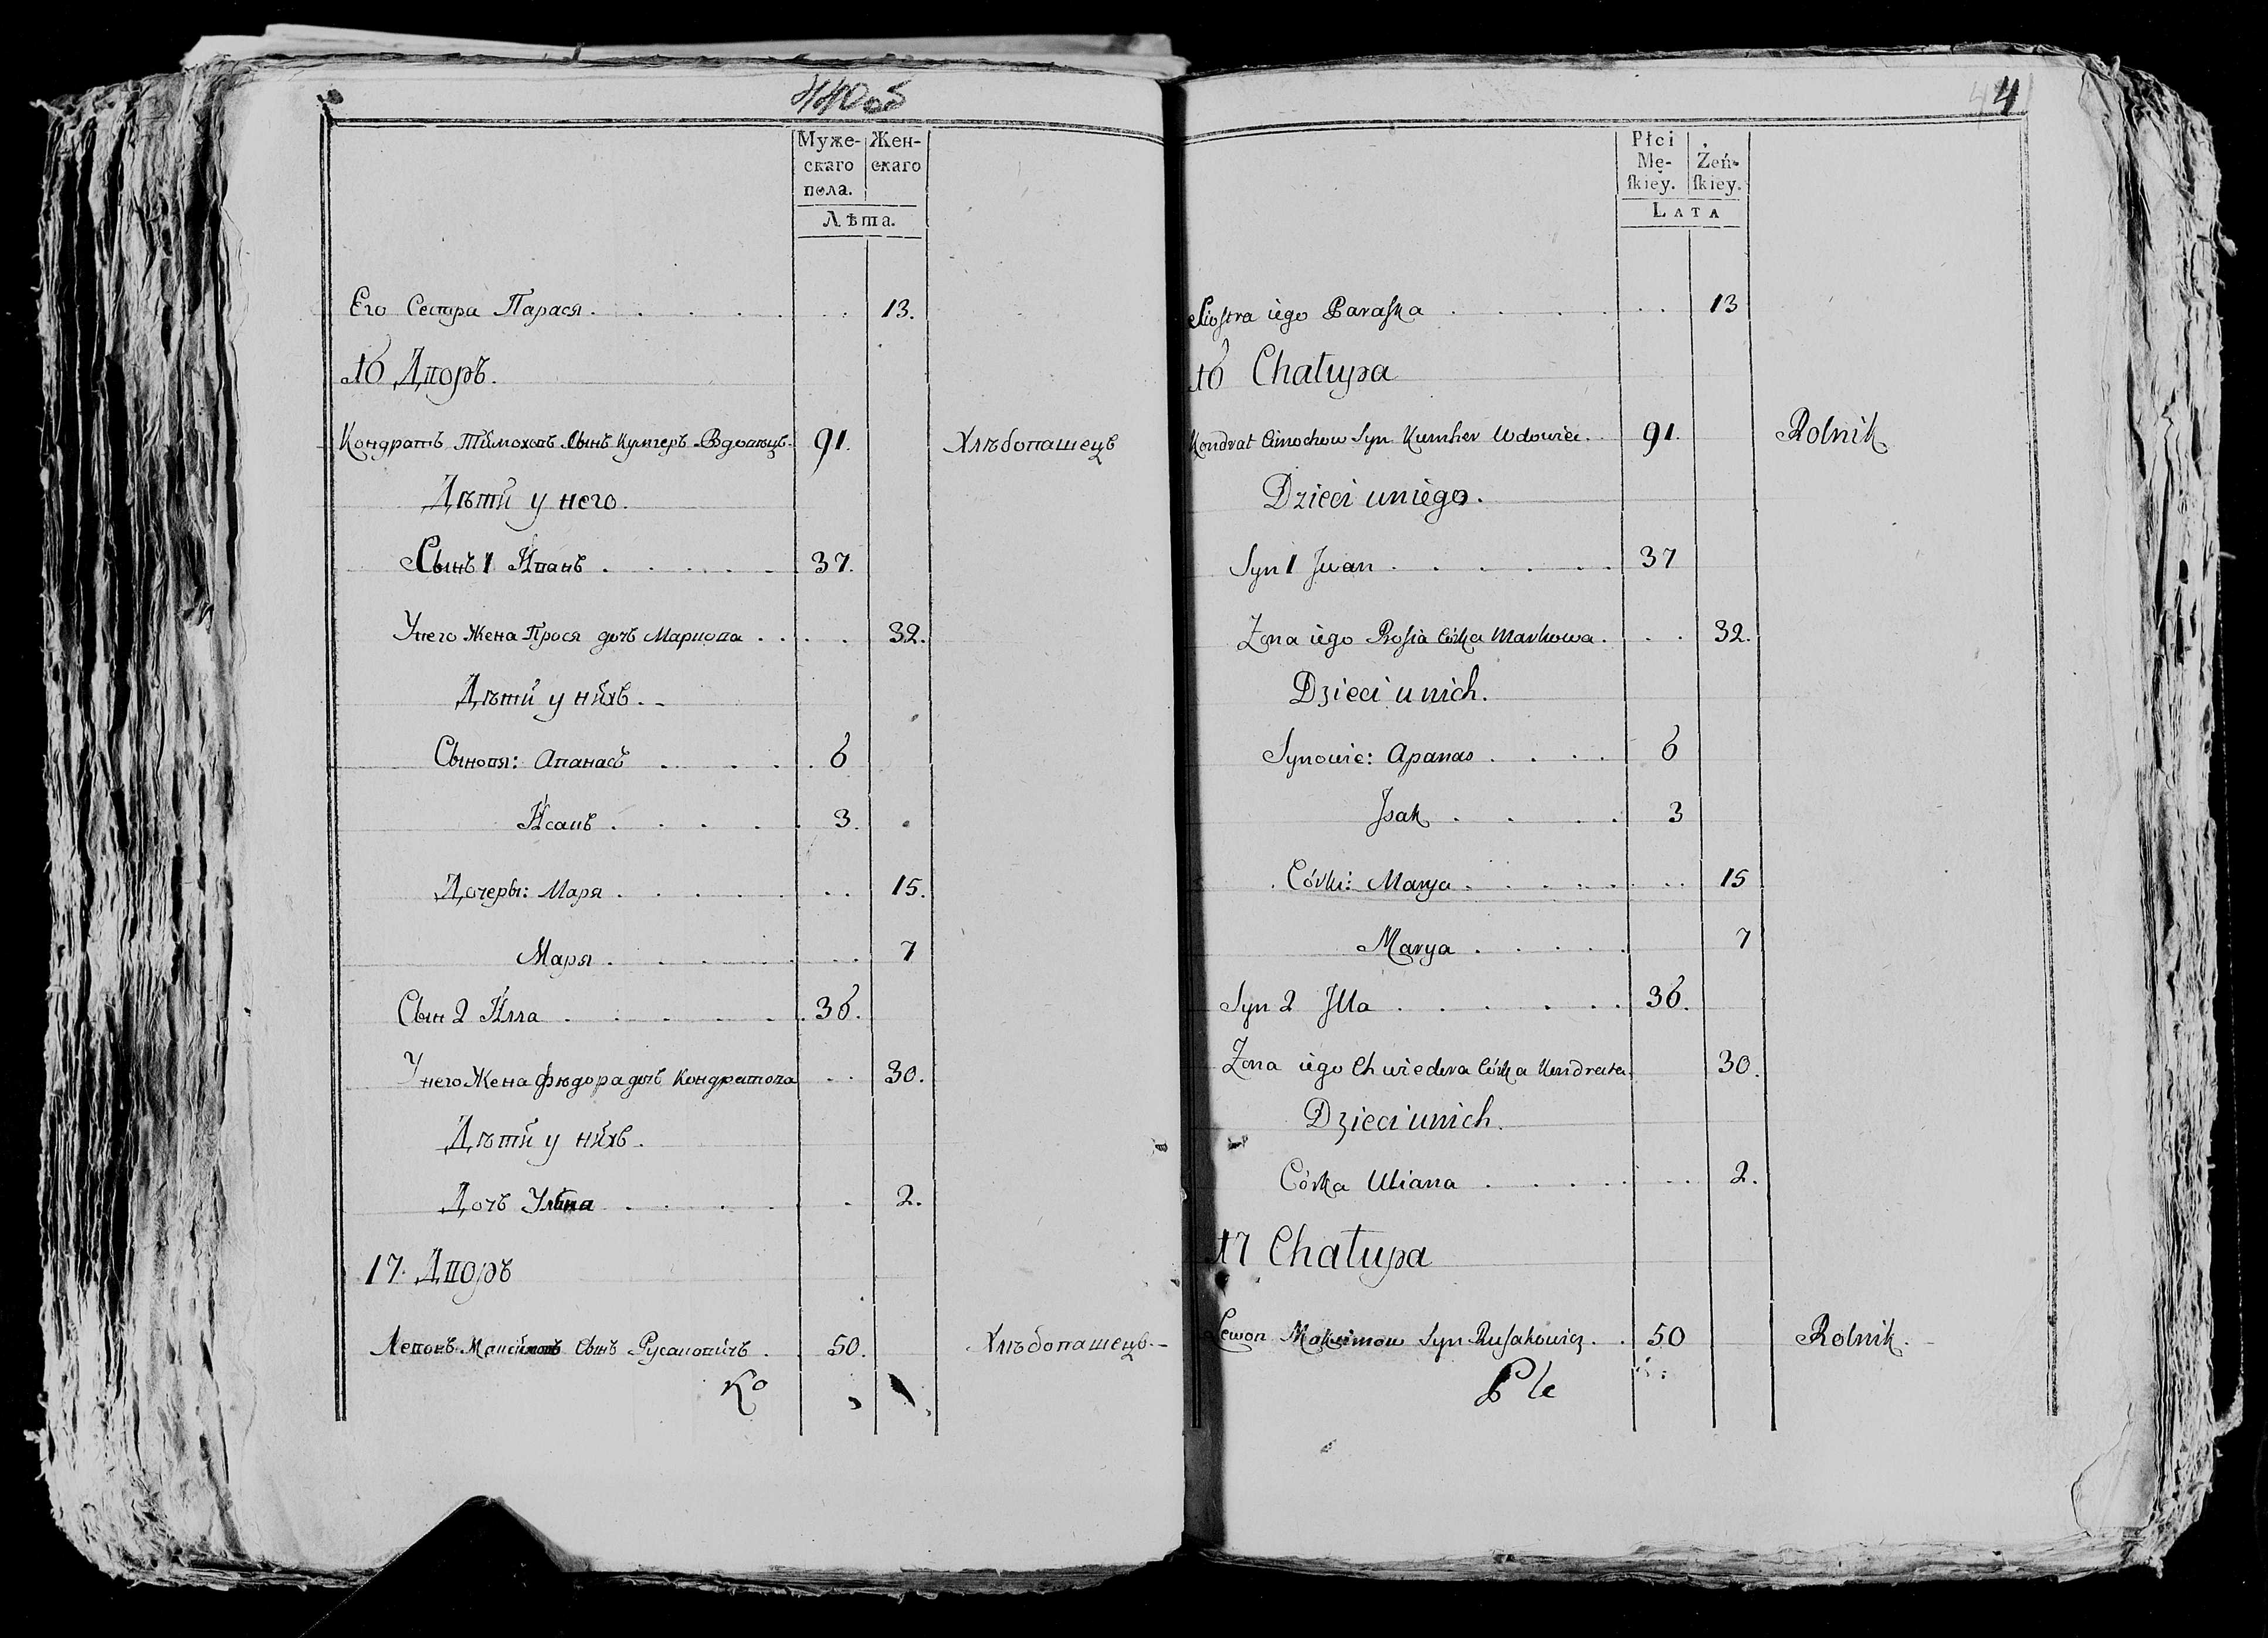 Муже-
скаго
пола.
Жен-
скаго
Лѣта.
Его Сестра Парася 13.
16 Дворъ.
Кондратъ Тимоховъ Сынъ Вдовецъ. 91. Хлѣбопашецъ
Дѣти у него.
Сынъ 1 Иванъ 37.
У него Жена Прося дочь Маркова 32.
Дѣти у нихъ.
Сыновя: Апанасъ 6
Исакъ 3.
Дочеры: Маря 15.
Маря 7
Сын 2 Илла 36.
У него Жена Фядора дочь Кондратова 30.
Дѣти у нихъ.
Дочь 2.
17. Дворъ
Левонъ Максимовъ Сынъ Русаковичъ 50. Хлѣбопашецъ.
44
Płci
Mę-
ſkiey.
Żeń-
ſkiey.
LATA
Siostra iego Paraska 13
16 Chałupa
Kondrat Cimochow Syn Kumher Wdowiec 91. Rolnik
Dzieci u niego.
Syn 1 Jwan 37
Zona iego Prosia Córka Markowa 32.
Dzieci u nich.
Synowie: Apanas 6
Jsak 3
Córki: Marya 15
Marya 7
Syn 2 Jlla 36.
Zona iego Chwiedora Córka Kondrata 30.
Dzieci u nich.
Córka Uliana 2.
17 Chałupa
Lewon Maksimow Syn Rusakowicz 50 Rolnik.